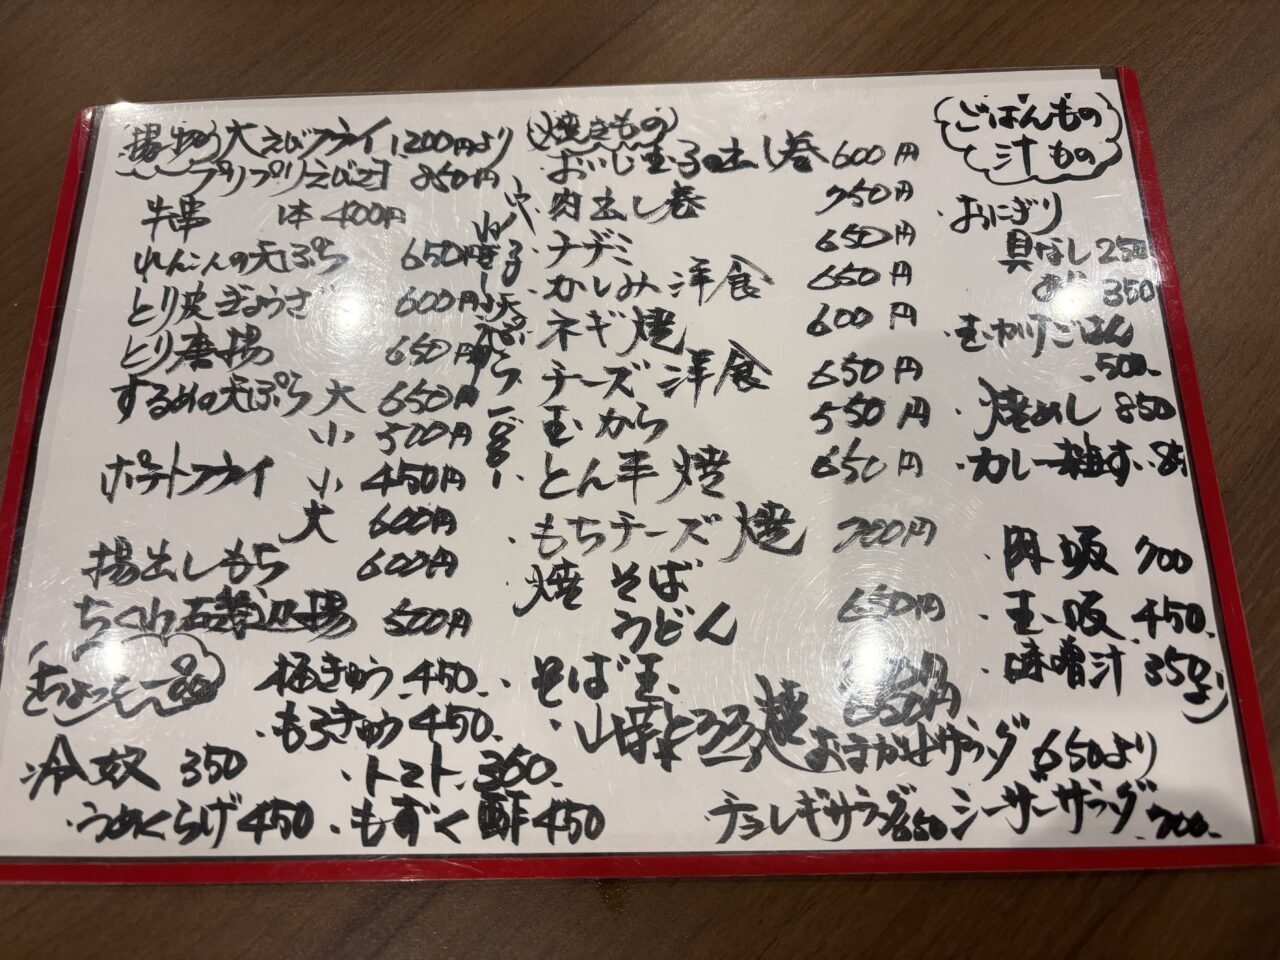 揚げ物
大えびフライ 1,200円より
プリプリえび天 850円
牛串 1本 400円
れんこんの天ぷら 650円
とり皮ぎょうさ 600円
とり唐揚 650円
するめの天ぷら 大 650円
小 500円
ポテトフライ 小 450円
大 600円
揚出しもち 600円
ちくわ磯辺揚 500円
焼きもの
おいし玉子の出し巻 600円
肉出し巻 750円
チヂミ 650円
かしみ洋食 650円
ネギ焼 600円
チーズ洋食 650円
玉から 550円
とん平焼 650円
もちチーズ焼 700円
焼そば
うどん 650円
そば玉
山芋とろろ焼 650円
ごはんもの
汁もの
・おにぎり
具なし 250
あり 350
・玉かけごはん
500.
・焼めし 850
・カレー雑す.
・豚汁 700
・玉汁 450.
・味噌汁 350より
ちょっと一品
梅きゅう 450.
・もろきゅう 450.
冷奴 350
・トマト 350.
・うめくらげ 450
・もずく酢 450
おまかせサラダ 650より
チョレギサラダ 650
シーザーサラダ 700.